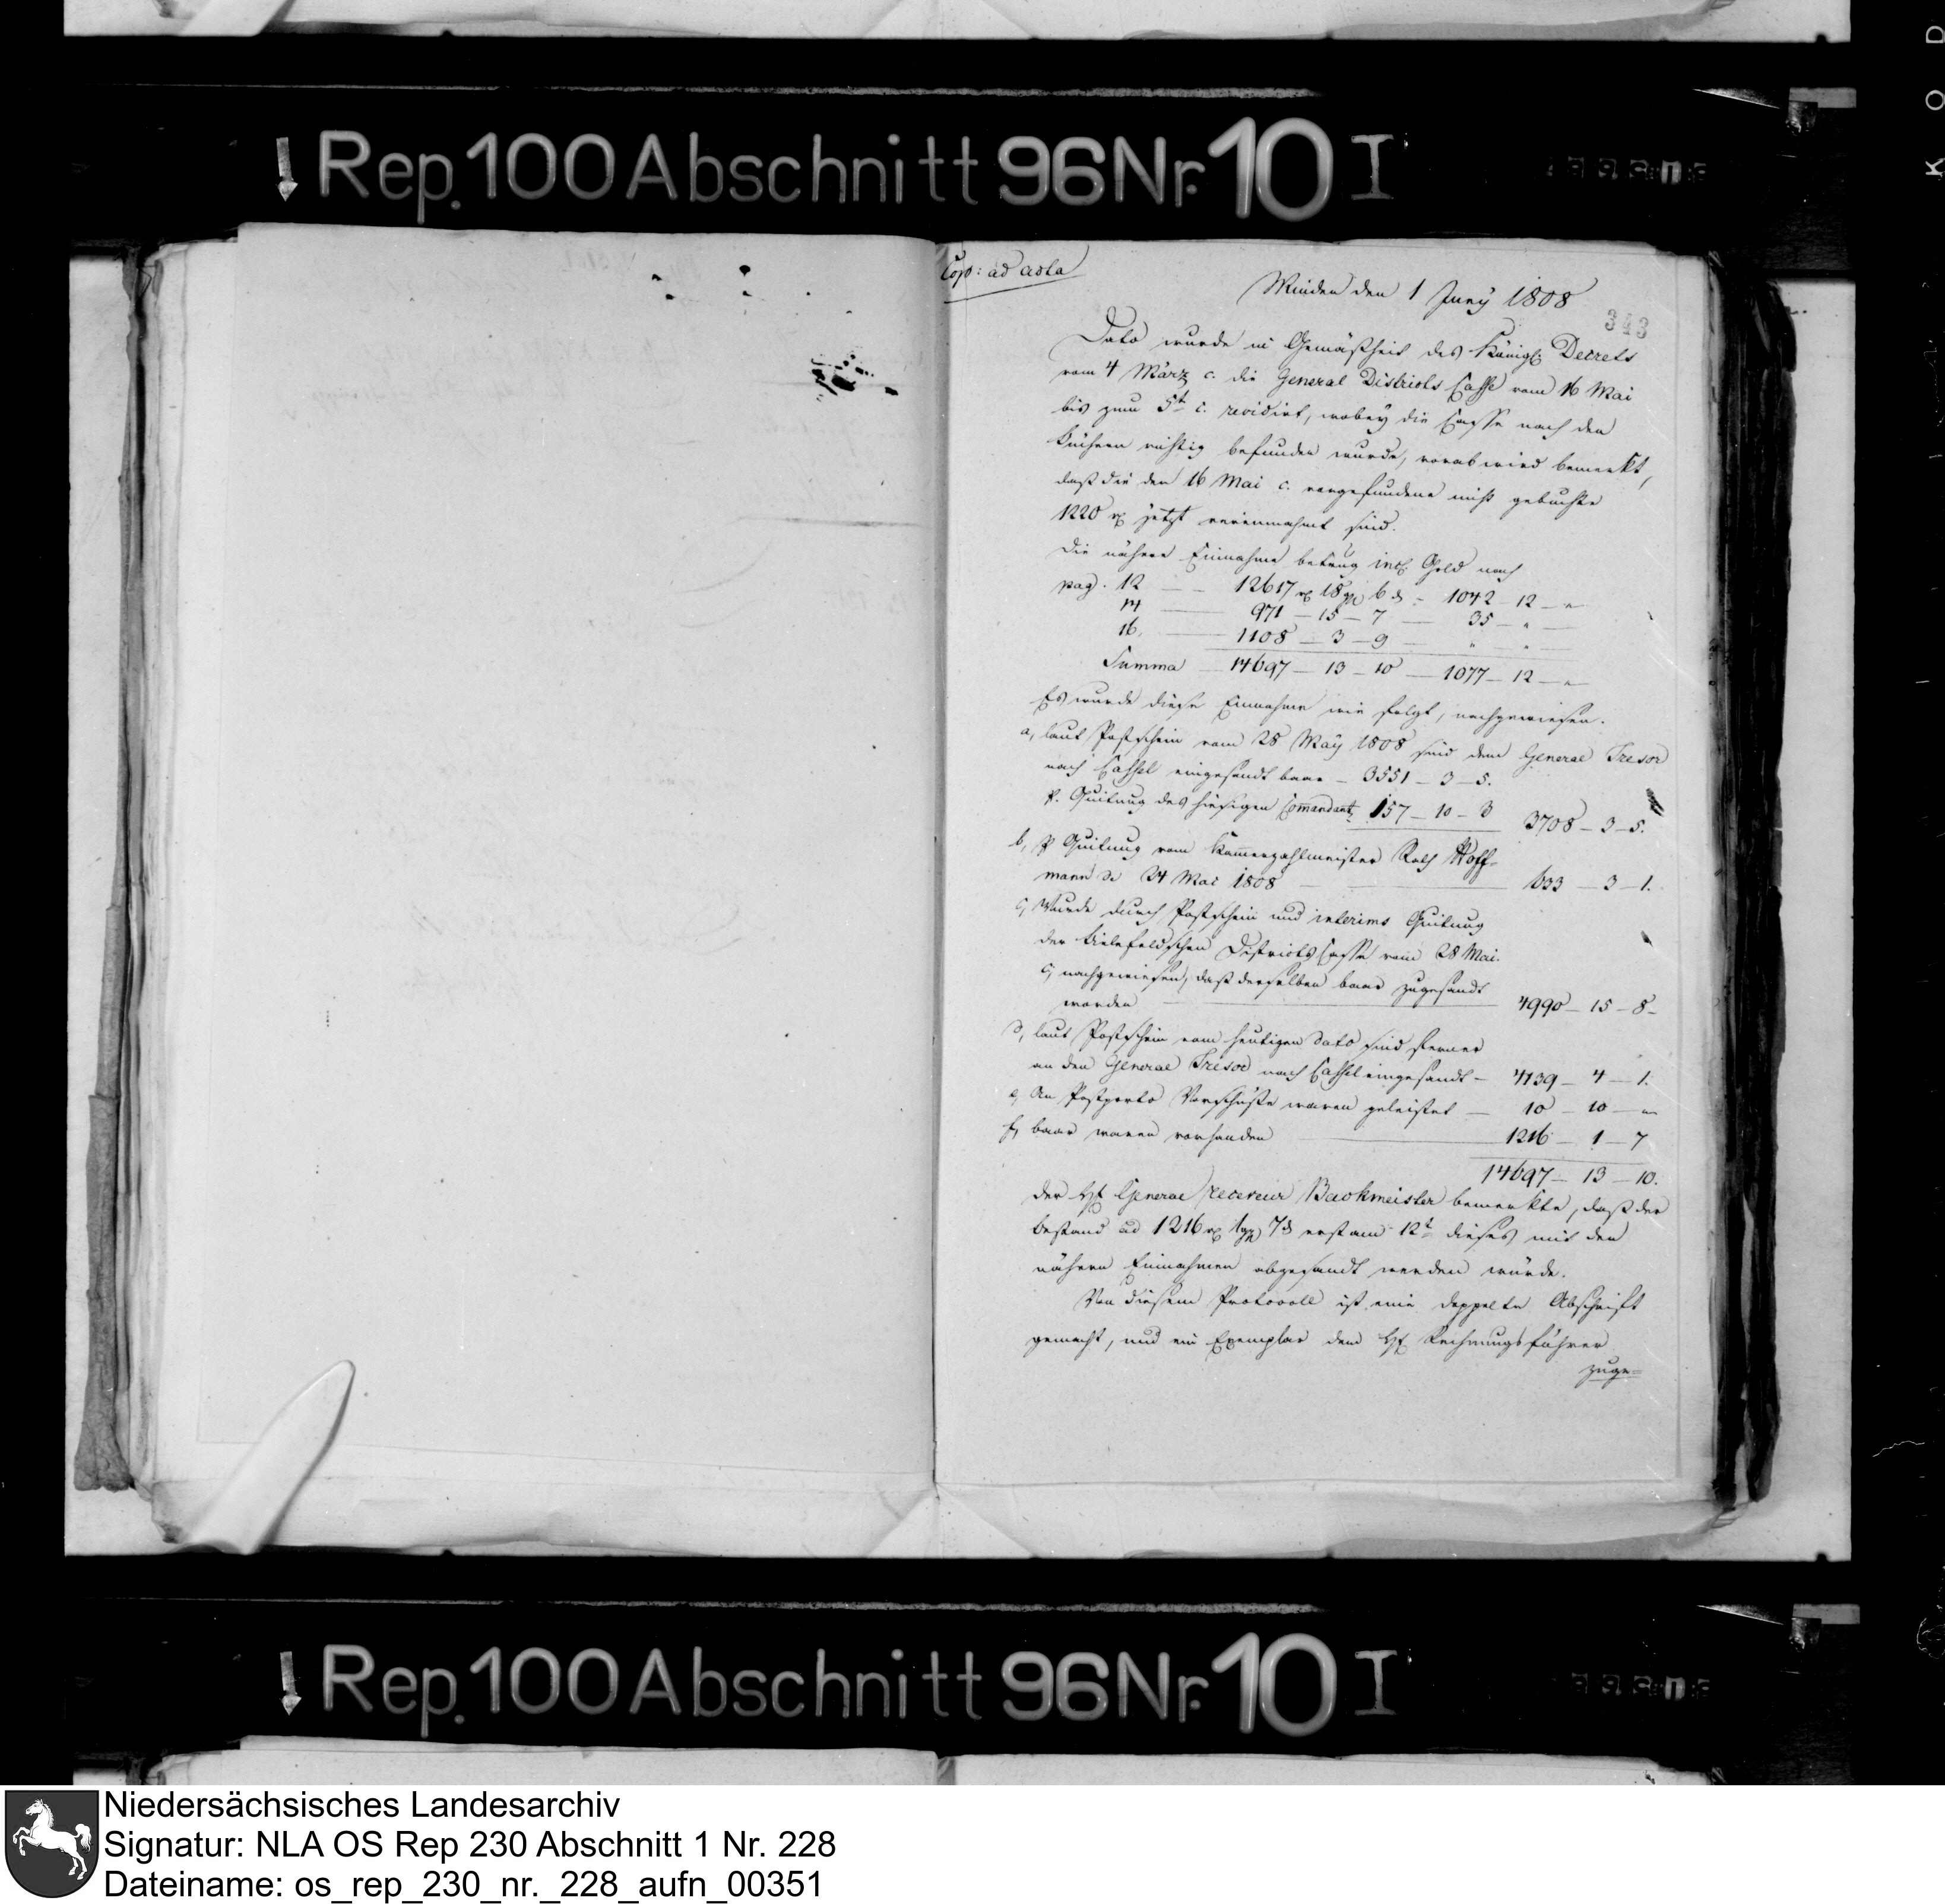 Rep. 100 Abschnitt 96 Nr. 10 I
Cop: ad acta
Minden den 1 Juny 1808
343
Dato wurde in Gemäßheit des Königl: Decrets
vom 4 März c. die General Districts Casse vom 16 Mai
bis zum 5t c. revidirt, wobey die Casse nach den
Büchern richtig befunden wurde, vorab wird bemerkt,
daß die den 16 Mai c. vorgefundene nicht gebuchte
1220 rℓ jetzt vereinnahmt sind.
Die nähere Einnahme betrug incl. Gold nach
pag. 12 — 12617 rℓ 18 ggr 6 ₰ — 1042 — 12 — "
14 — 971 — 15 — 7 — 35 — " —
16. — 1108 — 3 — 9 — " — " —
Summa — 14697 — 13 — 10 — 1077 — 12 — "
Es wurde diese Einnahme wie folgt, nachgewiesen.
a, laut Postschein vom 28 May 1808 sind dem General Tresor
nach Cassel eingesandt baar — 3551 — 3 — 5.
p. Quitung des hiesigen Comandant 157 — 10 — 3 3708 — 3 — 5.
b, p Quitung vom Kammerzahlmeister Hoff-
mann de 24 Mai 1808 — 633 — 3 — 1.
c, Wurde durch Postschein und interims Quitung
der Bielefeldschen Districts Casse vom 28 Mai.
c, nachgewiesen, daß derselben baar zugesandt
worden — 4990 — 15 — 8 —
d, laut Postschein vom heutigen Dato sind ferner
an den General Trésor nach Cassel eingesandt — 4139 — 4 — 1.
e, An Postporto Vorschüße waren geleistet — 10 — 10 — "
f, baar waren vorhanden — 1216 — 1 — 7
14697 — 13 — 10.
Der Hℓ General receveur Backmeister bemerkte, daß der
Bestand ad 1216 rℓ 1 ggr 7 ₰ erst am 12t dieses mit den
nähern Einnahmen abgesandt werden würde.
Von diesem Protocoll ist eine doppelte Abschrift
gemacht, und ein Exemplar dem Hℓ Rechnungsführer
zuge-
Rep. 100 Abschnitt 96 Nr. 10 I
KOD
Niedersächsisches Landesarchiv
Signatur: NLA OS Rep 230 Abschnitt 1 Nr. 228
Dateiname: os_rep_230_nr._228_aufn_00351